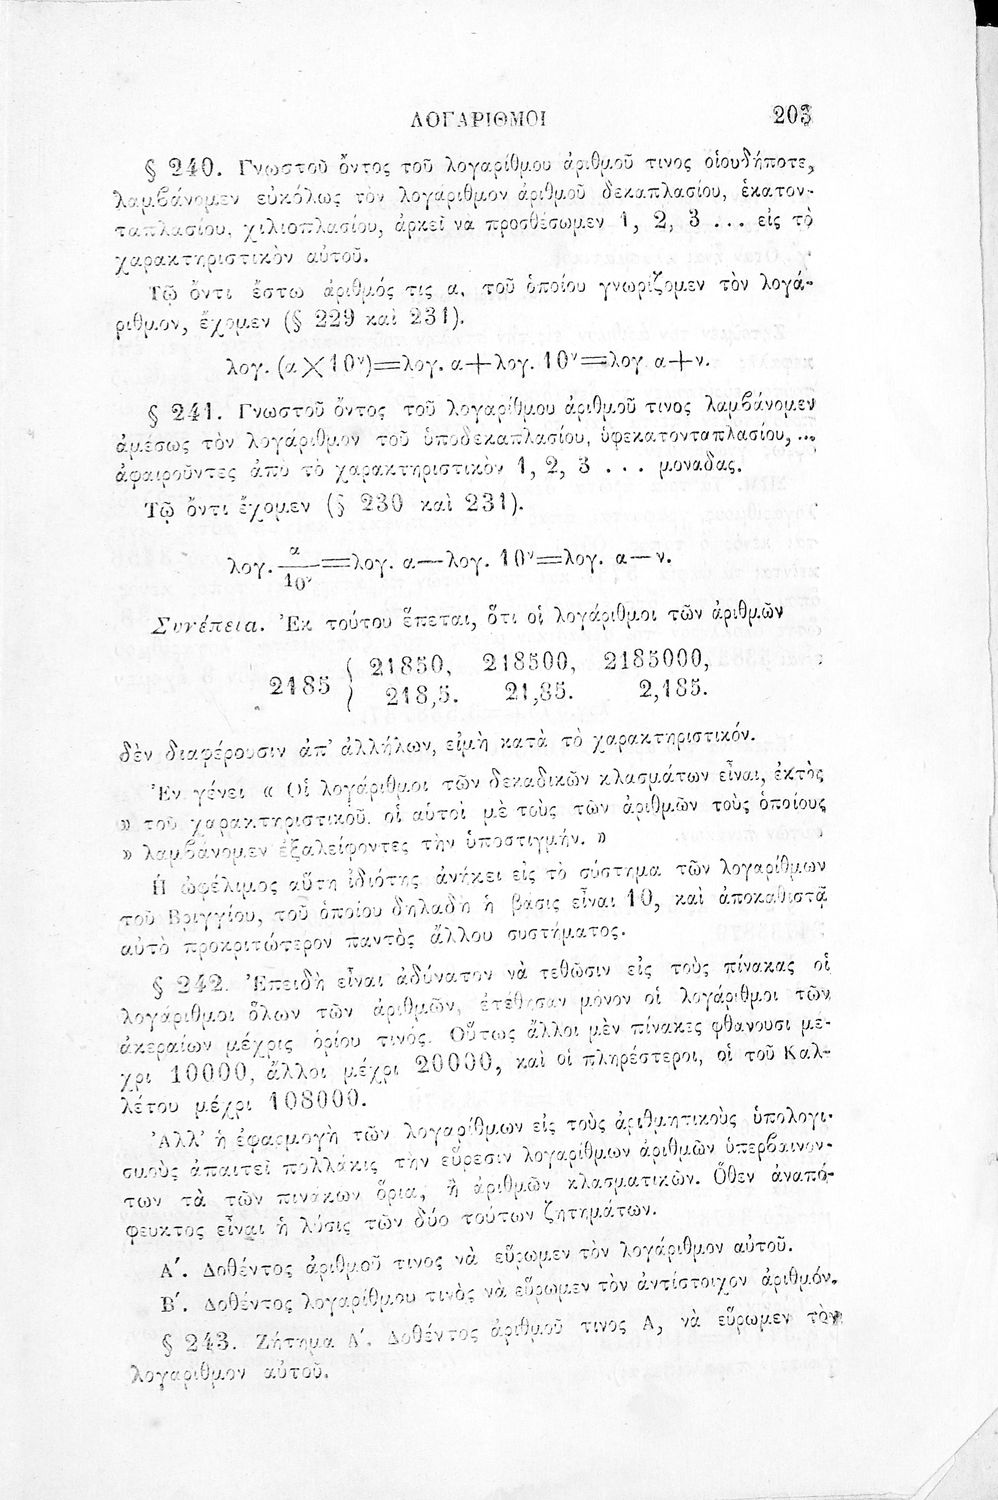 ΛΟΓΑΡΙΘΜΟΙ 203
§ 240. Γνωστοῦ ὄντος τοῦ λογαρίθμου ἀριθμοῦ τινος οἱουδήποτε,
λαμβάνομεν εὐκόλως τὸν λογάριθμον ἀριθμοῦ δεκαπλασίου, ἑκατον-
ταπλασίου, χιλιοπλασίου, ἀρκεῖ νὰ προσθέσωμεν 1, 2, 3 ... εἰς τὸ
χαρακτηριστικὸν αὐτοῦ.
Τῷ ὄντι ἔστω ἀριθμός τις α, τοῦ ὁποίου γνωρίζομεν τὸν λογά-
ριθμον, ἔχομεν (§ 229 καὶ 231).
λογ. (α × 10ᵛ)=λογ. α+λογ. 10ᵛ=λογ α+ν.
§ 241. Γνωστοῦ ὄντος τοῦ λογαρίθμου ἀριθμοῦ τινος λαμβάνομεν
ἀμέσως τὸν λογάριθμον τοῦ ὑποδεκαπλασίου, ὑφεκατονταπλασίου, ...
ἀφαιροῦντες ἀπὸ τὸ χαρακτηριστικὸν 1, 2, 3 ... μοναδας.
Τῷ ὄντι ἔχομεν (§ 230 καὶ 231).
λογ. α/10ᵛ=λογ. α—λογ. 10ᵛ=λογ. α—ν.
Συνέπεια. Ἐκ τούτου ἕπεται, ὅτι οἱ λογάριθμοι τῶν ἀριθμῶν
2185 { 21850, 218500, 2185000,
218,5. 21,85. 2,185.
δὲν διαφέρουσιν ἀπ' ἀλλήλων, εἰμὴ κατὰ τὸ χαρακτηριστικόν.
Ἐν γένει « Οἱ λογάριθμοι τῶν δεκαδικῶν κλασμάτων εἶναι, ἐκτὸς
» τοῦ χαρακτηριστικοῦ. οἱ αὐτοὶ μὲ τοὺς τῶν ἀριθμῶν τοὺς ὁποίους
» λαμβάνομεν ἐξαλείφοντες τὴν ὑποστιγμήν. »
Ἡ ὠφέλιμος αὕτη ἰδιότης ἀνήκει εἰς τὸ σύστημα τῶν λογαρίθμων
τοῦ Βριγγίου, τοῦ ὁποίου δηλαδὴ ἡ βάσις εἶναι 10, καὶ ἀποκαθιστᾷ
αὐτὸ προκριτώτερον παντὸς ἄλλου συστήματος.
§ 242. Ἐπειδὴ εἶναι ἀδύνατον νὰ τεθῶσιν εἰς τοὺς πίνακας οἱ
λογάριθμοι ὅλων τῶν ἀριθμῶν, ἐτέθησαν μόνον οἱ λογάριθμοι τῶν
ἀκεραίων μέχρις ὁρίου τινός. Οὕτως ἄλλοι μὲν πίνακες φθανουσι μέ-
χρι 10000, ἄλλοι μέχρι 20000, καὶ οἱ πληρέστεροι, οἱ τοῦ Καλ-
λέτου μέχρι 108000.
Ἀλλ' ἡ ἐφαρμογὴ τῶν λογαρίθμων εἰς τοὺς ἀριθμητικοὺς ὑπολογι-
σμοὺς ἀπαιτεῖ πολλάκις τὴν εὕρεσιν λογαρίθμων ἀριθμῶν ὑπερβαινον-
των τὰ τῶν πινάκων ὅρια, ἢ ἀριθμῶν κλασματικῶν. Ὅθεν ἀναπό-
φευκτος εἶναι ἡ λύσις τῶν δύο τούτων ζητημάτων.
Α΄. Δοθέντος ἀριθμοῦ τινος νὰ εὕρωμεν τὸν λογάριθμον αὐτοῦ.
Β΄. Δοθέντος λογαρίθμου τινὸς νὰ εὕρωμεν τὸν ἀντίστοιχον ἀριθμόν.
§ 243. Ζήτημα Α΄. Δοθέντος ἀριθμοῦ τινος Α, νὰ εὕρωμεν τὸν
λογαριθμον αὐτοῦ.